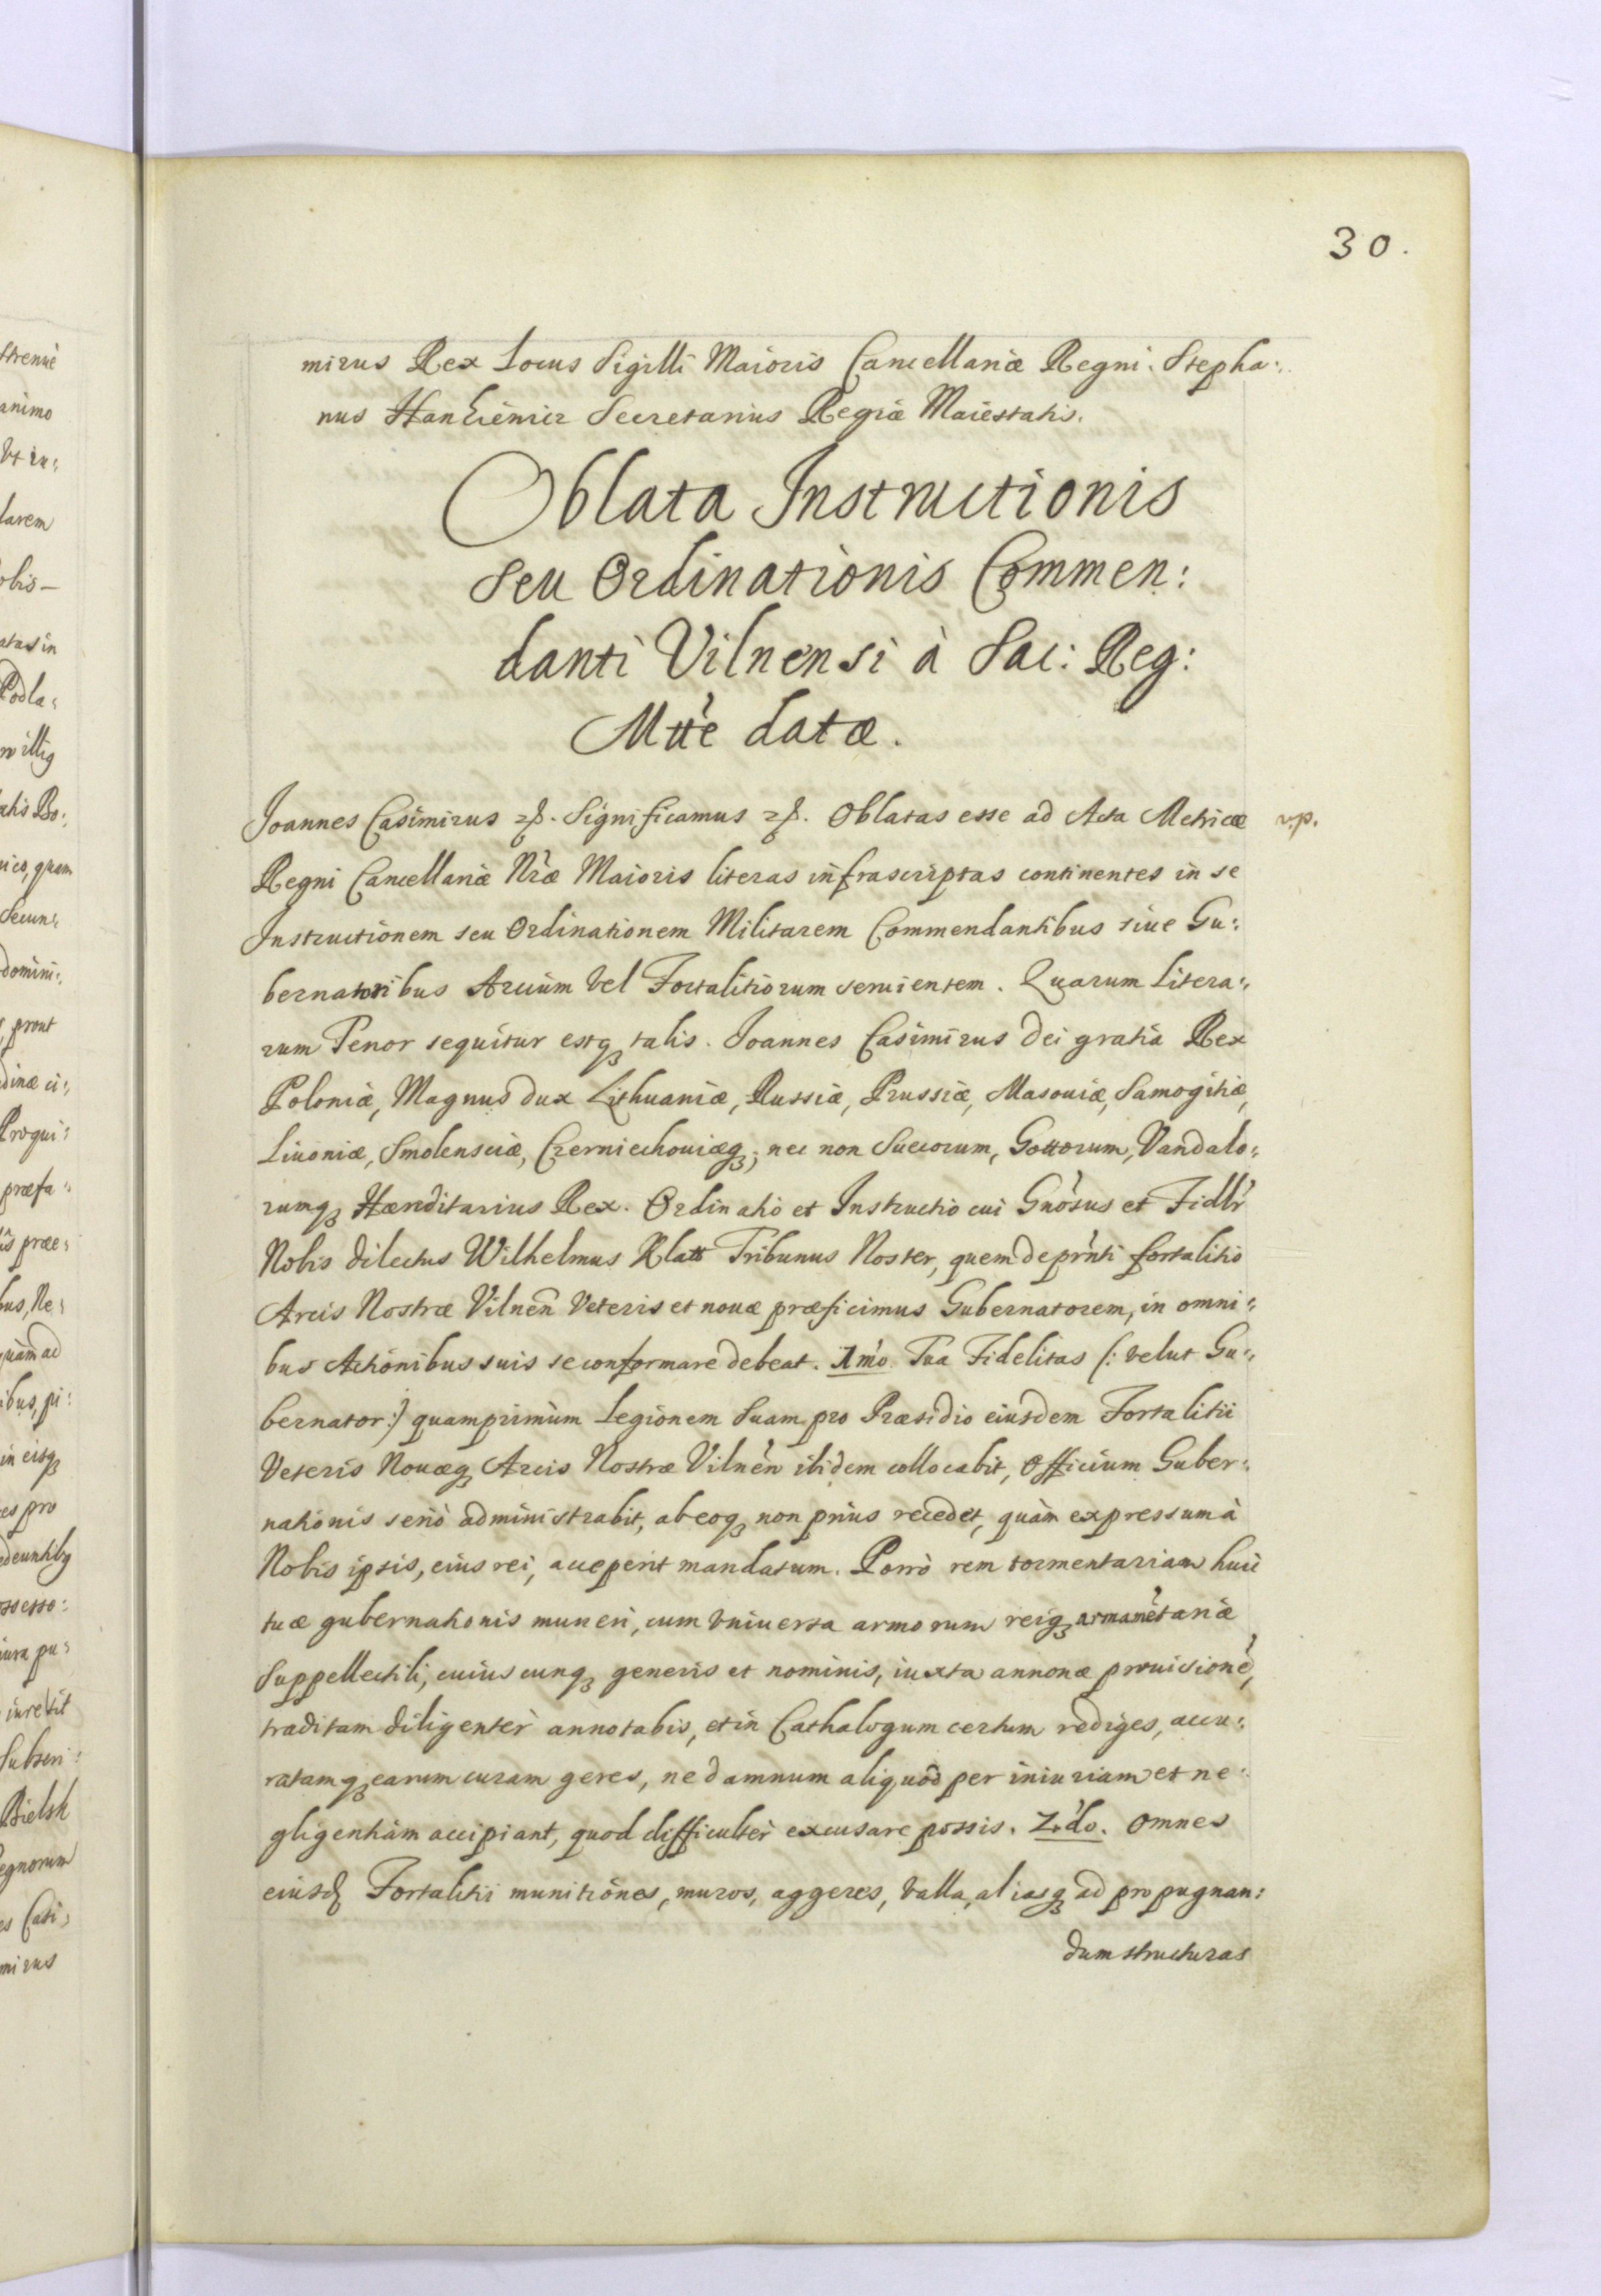 30.
mirus Rex Locus Sigilli Maioris Cancellariæ Regni. Stepha:
nus Hankiewicz Secretarius Regiæ Maiestatis.
Oblata Instructionis
seu Ordinationis Commen:
danti Vilnensi à Sac: Reg:
Mtte datæ.
Joannes Casimirus etc. Significamus etc. Oblatas esse ad Acta Metricæ
Regni Cancellariæ Nræ Maioris literas infrascriptas continentes in se
Instructionem seu Ordinationem Militarem Commendantibus siue Gu:
bernatoribus Arcium vel Fortalitiorum seruientem. Quarum Litera:
rum Tenor sequitur estq talis. Joannes Casimirus Dei gratia Rex
Poloniæ, Magnus dux Lithuaniæ, Russiæ, Prussiæ, Masouiæ, Samogitiæ,
Liuoniæ, Smolensciæ, Czerniechouiæq; nec non Suecorum, Gottorum, Vandalo:
rumq Hæreditarius Rex. Ordinatio et Instructio cui Gnosus et Fidlr
Nobis dilectus Wilhelmus Klatt Tribunus Noster, quem de prnti fortalitio
Arcis Nostræ Vilnen Veteris et nouæ præficimus Gubernatorem, in omni:
bus Actionibus suis se conformare debeat. 1mo Tua Fidelitas (: velut Gu:
bernator:) quamprimum Legionem Suam pro Præsidio eiusdem Fortalitii
Veteris Nouæq Arcis Nostræ Vilnen ibidem collocabit, Officium Guber:
nationis seriò administrabit, ab eoq non prius recedet, quàm expressum à
Nobis ipsis, eius rei, acceperit mandatum. Porrò rem tormentariam huic
tuæ gubernationis muneri, cum vniuersa armorum reiq armametariæ
Suppellectili, cuiuscunq generis et nominis, iuxta annonæ prouisione,
traditam diligentèr annotabis, et in Cathalogum certum rediges, accu:
ratamq earum curam geres, ne damnum aliquod per iniuriam et ne:
gligentiam accipiant, quod difficultèr excusare possis. 2do. Omnes
eiusd Fortalitii munitiones, muros, aggeres, valla, aliasq ad propugnan:
dum structuras